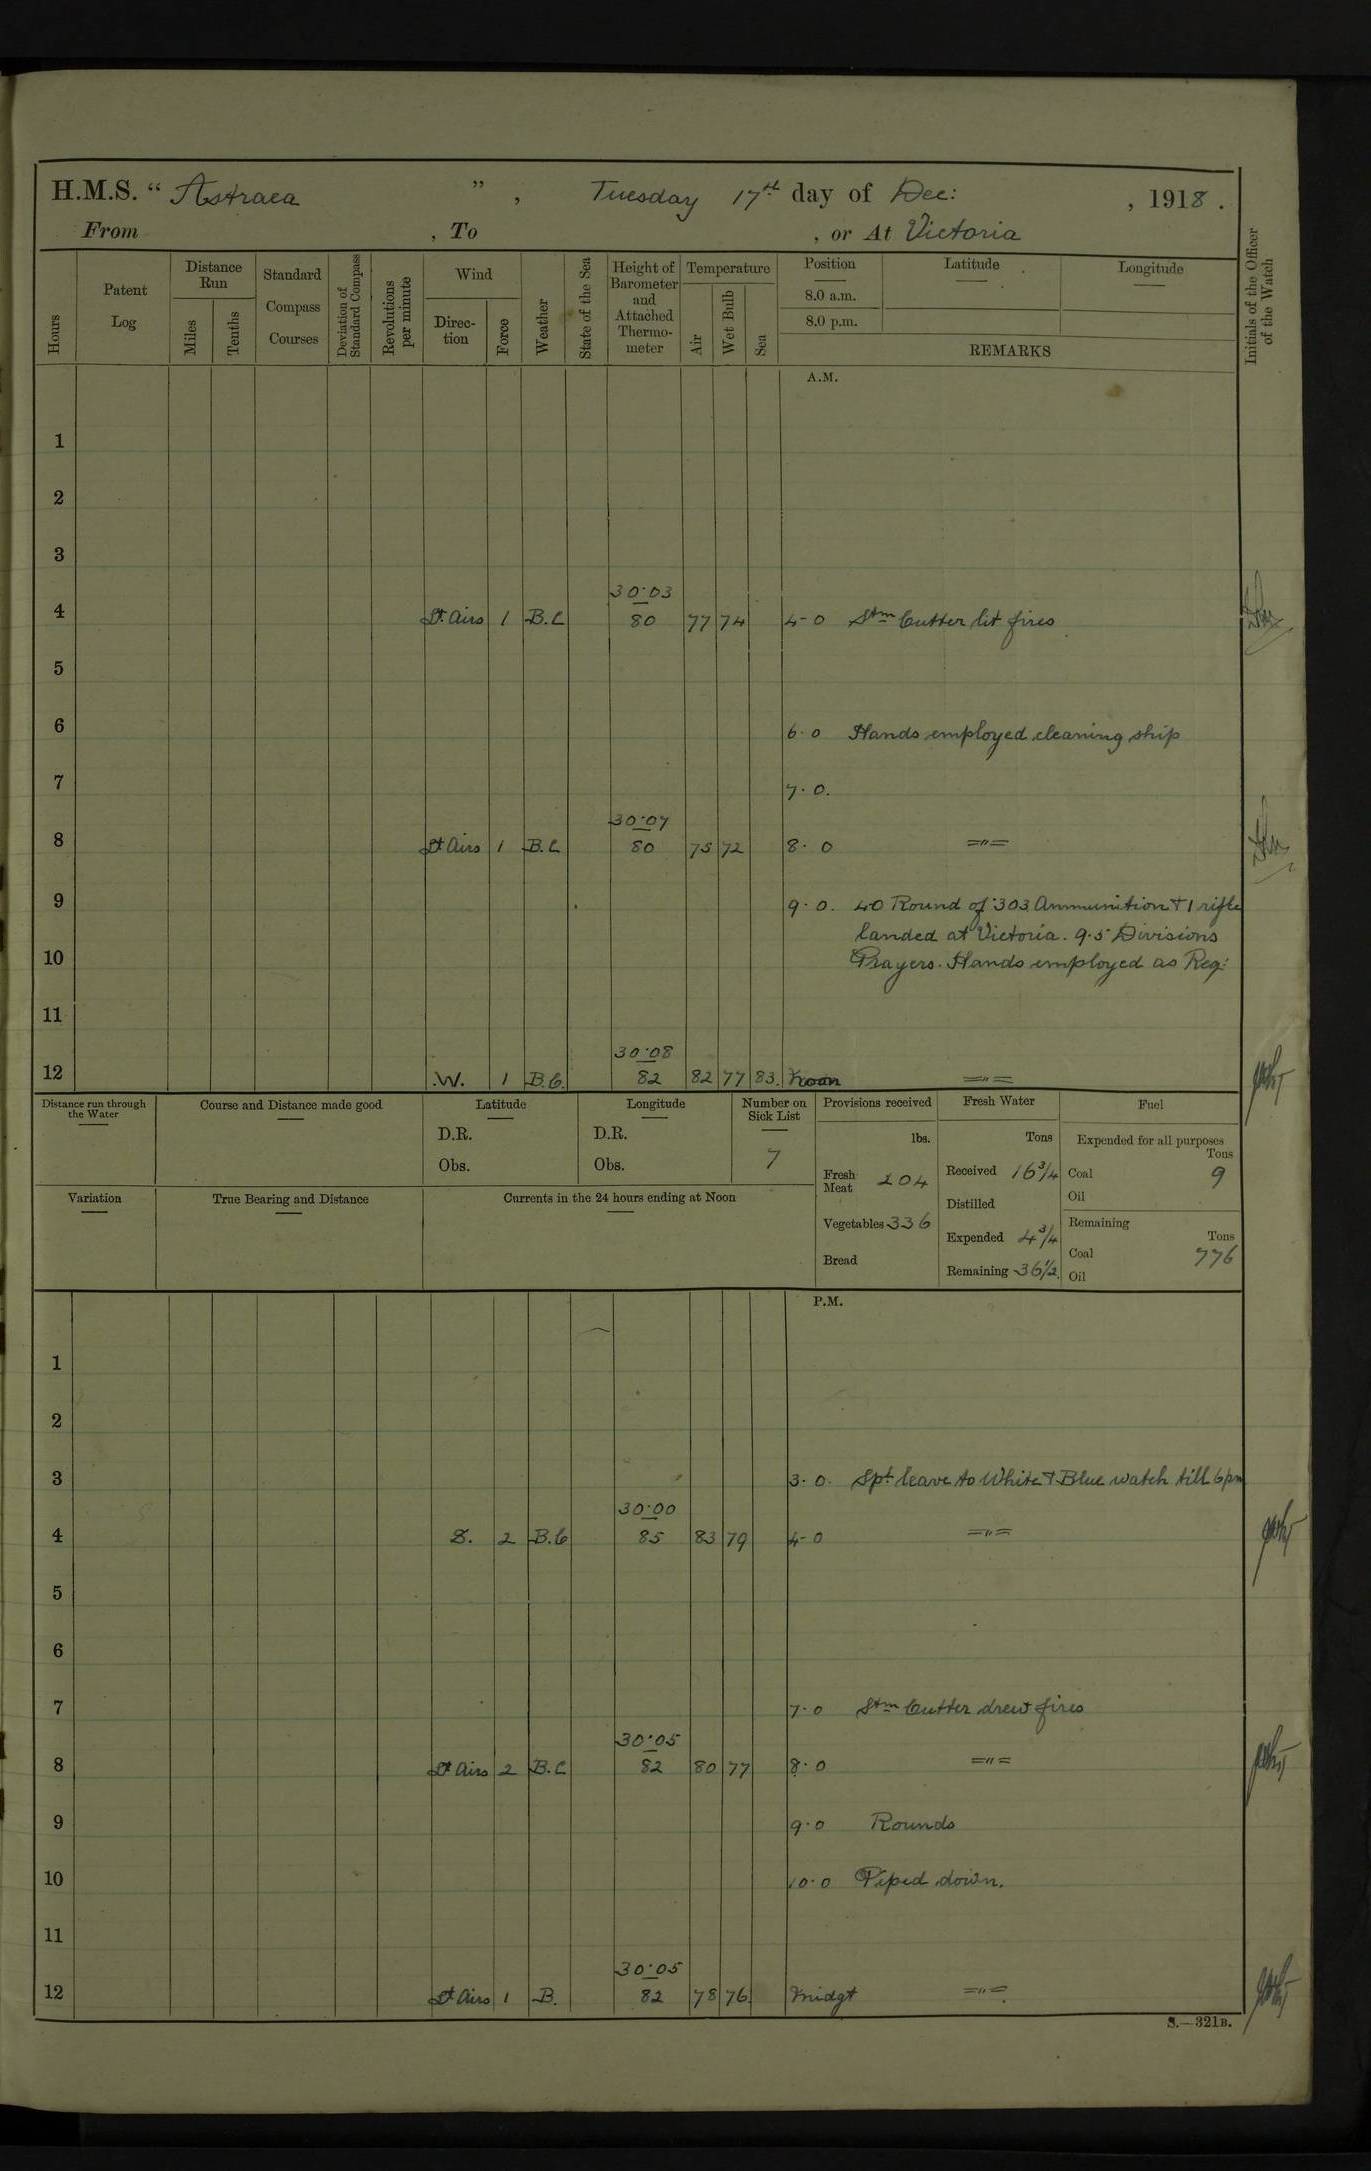 H.M.S. “ Astraea ” , Tuesday 17th day of Dec: , 1918 .
From , To , or At Victoria
Hours
Patent Log
Distance Run
Miles
Tenths
Standard Compass Courses
Deviation of Standard Compass
Revolutions per minute
Wind
Direction
Force
Weather
State of the Sea
Height of Barometer and Attached Thermometer
Temperature
Air
Wet Bulb
Sea
Position
8.0 a.m.
8.0 p.m.
Latitude
Longitude
REMARKS
Initials of the Officer of the Watch
A.M.
1
2
3
30·03
4 Lt Airs 1 B.C 80 77 74 4-0 Stm Cutter lit fires
5
6 6·0 Hands employed cleaning ship
7 7·0.
30·07
8 Lt Airs 1 B.C 80 75 72 8·0 ="=
9 9·0. 40 Round of ·303 Ammunition + 1 rifle
landed at Victoria. 9·5 Divisions
10 Prayers. Hands employed as Req:
11
30·08
12 W. 1 B.C. 82 82 77 83. Noon ="=
Distance run through the Water
Course and Distance made good
Latitude
D.R.
Obs.
Longitude
D.R.
Obs.
Number on Sick List
7
Provisions received
lbs.
Fresh Meat 204
Vegetables 336
Bread
Fresh Water
Tons
Received 16 3/4
Distilled
Expended 4 3/4
Remaining 36 1/2.
Fuel
Expended for all purposes
Tons
Coal 9
Oil
Remaining
Tons
Coal 776
Oil
Variation
True Bearing and Distance
Currents in the 24 hours ending at Noon
P.M.
1
2
3 3·0. Spl leave to White + Blue watch till 6pm
30·00
4 S. 2 B.C 85 83 79 4-0 ="=
5
6
7 7·0 Stm Cutter drew fires
30·05
8 Lt Airs 2 B.C 82 80 77 8·0 ="=
9 9·0 Rounds
10 10·0 Piped down.
11
30·05
12 Lt Airs 1 B. 82 78 76. Midgt ="=
S.—321B.